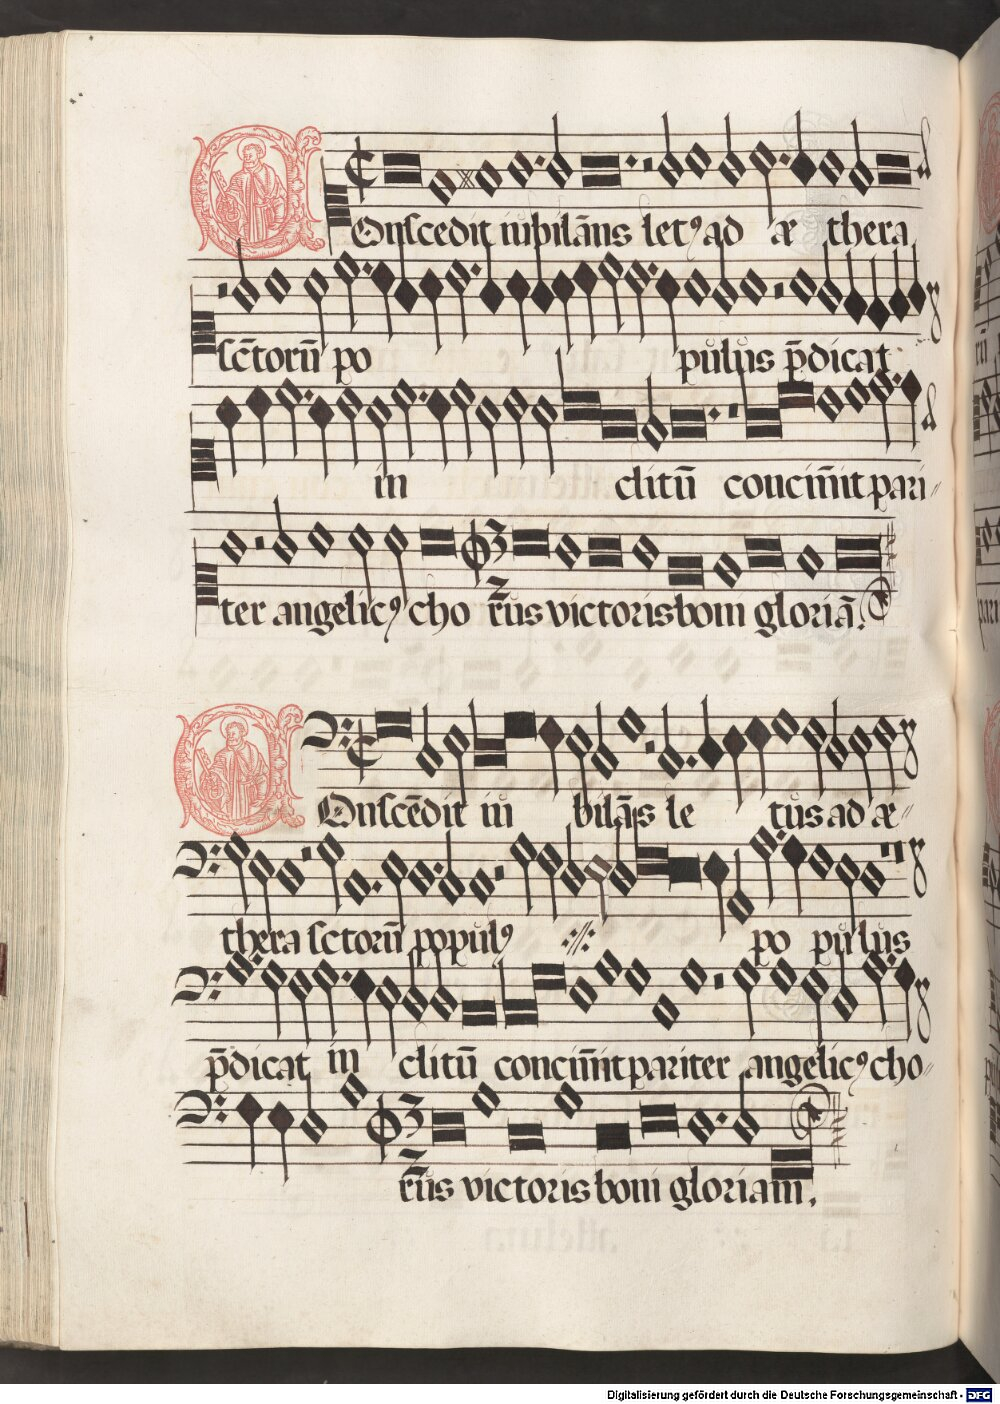 COnscedit iubilās letꝰ ad æ thera
sc̄torū po pulus p̄dicat
in clitū concin̄it pari〃
ter angelicꝰ cho r̄us victoris boni gloriā.
COnscēdit iu bilās le tus ad æ〃
thera sctorū populꝰ :⫽: po pulus
p̄dicat in clitū concin̄it pariter angelicꝰ cho〃
r̄us victoris boni gloriam.
Digitalisierung gefördert durch die Deutsche Forschungsgemeinschaft - DFG